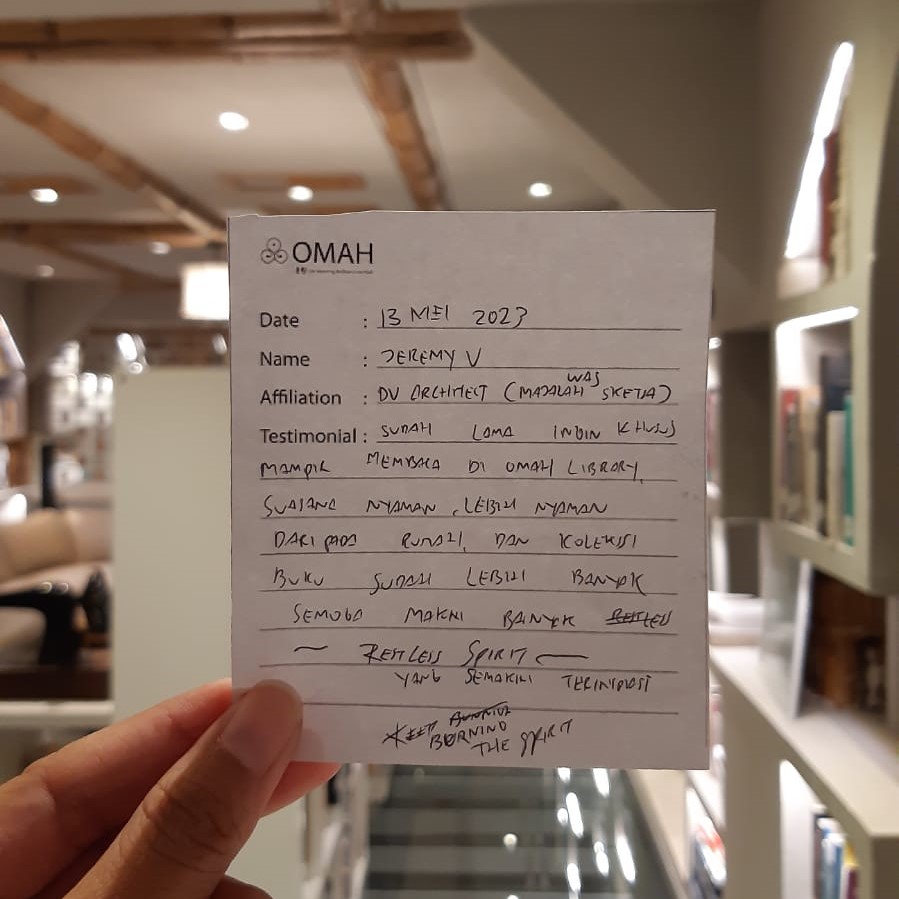 OMAH
Date : 13 MEI 2023
Name : JEREMY V
WAS
Affiliation : DV ARCHITECT (MAJALAH SKETSA)
Testimonial : SUDAH LAMA INGIN KHUSUS
MAMPIR MEMBACA DI OMAH LIBRARY,
SUASANA NYAMAN, LEBIH NYAMAN
DARI PADA RUMAH, DAN KOLEKSI
BUKU SUDAH LEBIH BANYAK
SEMOGA MAKIN BANYAK RESTLESS
~ RESTLESS SPIRIT ~
YANG SEMAKIN TERINSPIRASI
KEEP BURNING
BURNING
THE SPIRIT